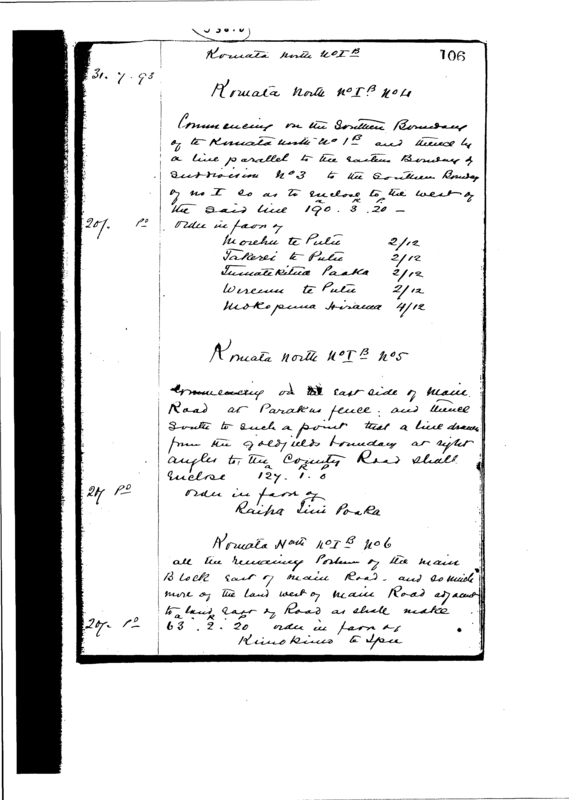 Komata North No I B
106
31. 7. 93
Komata North No I B No 4
Commencing on the Southern Boundary
of the Komata North No 1 B and thence by
a line parallel to the Eastern Boundary of
Subdivision No 3 to the Southern Boundary
of No I so as to enclose to the west of
the said line 190 . 3 . 20 —
a r p
20/. Pd
Order in favor of
Morehu te Putu 2/12
Takerei te Putu 2/12
Tumate Kitua Paaka 2/12
Wiremu te Putu 2/12
Mokopuna Hirawa 4/12
Komata North No I B No 5
Commencing on the East side of Main
Road at Parakas fence, and thence
South to such a point that a line drawn
from the Goldfields boundary at right
angles to the County Road shall
Enclose 127 . 1 . 0
a R P
20/ Pd
Order in favor of
Raiha Tini Paaka
Komata North No I B No 6
all the remaining Portion of the Main
Block East of Main Road . and so much
more of the land west of Main Road adjacent
to land East of Road as shall make
a R P
20/. Pd
63 . 2 . 20 order in favor of
Kinokino te Ipu